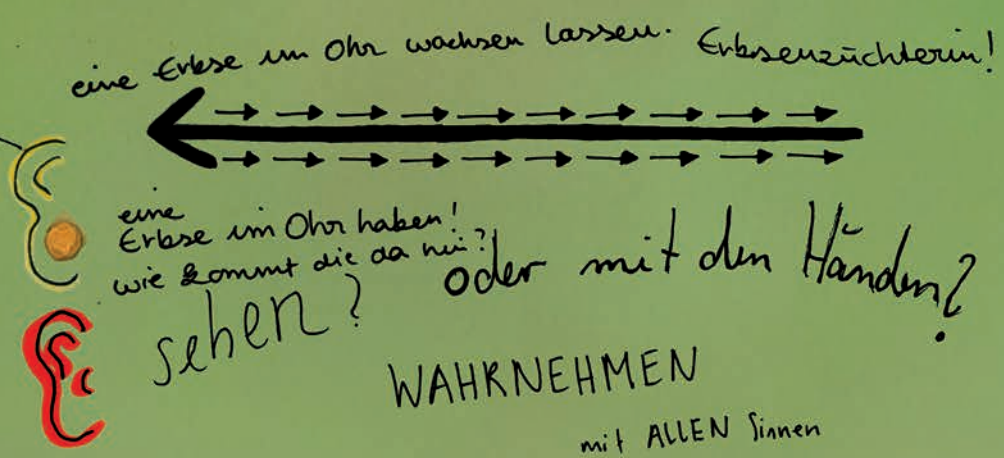 eine Erbse im Ohr wachsen lassen. Erbsenzüchterin!
eine
Erbse im Ohr haben!
wie kommt die da rein?
sehen? oder mit den Händen?
WAHRNEHMEN
mit ALLEN Sinnen